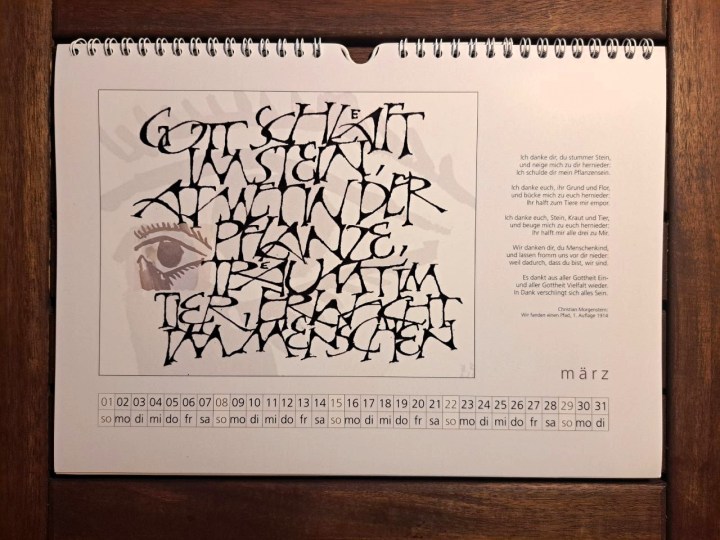 GOTT SCHLÆFT
IM STEIN,
ATMET IN DER
PFLANZE,
TRÆUMT IM
TIER, ERWACHT
IM MENSCHEN
Ich danke dir, du stummer Stein,
und neige mich zu dir hernieder:
Ich schulde dir mein Pflanzensein.
Ich danke euch, ihr Grund und Flor,
und bücke mich zu euch hernieder:
Ihr halft zum Tiere mir empor.
Ich danke euch, Stein, Kraut und Tier,
und beuge mich zu euch hernieder:
Ihr halft mir alle drei zu Mir.
Wir danken dir, du Menschenkind,
und lassen fromm uns vor dir nieder:
weil dadurch, dass du bist, wir sind.
Es dankt aus aller Gottheit Ein-
und aller Gottheit Vielfalt wieder.
In Dank verschlingt sich alles Sein.
Christian Morgenstern:
Wir fanden einen Pfad, 1. Auflage 1914
märz
01 02 03 04 05 06 07 08 09 10 11 12 13 14 15 16 17 18 19 20 21 22 23 24 25 26 27 28 29 30 31
so mo di mi do fr sa so mo di mi do fr sa so mo di mi do fr sa so mo di mi do fr sa so mo di